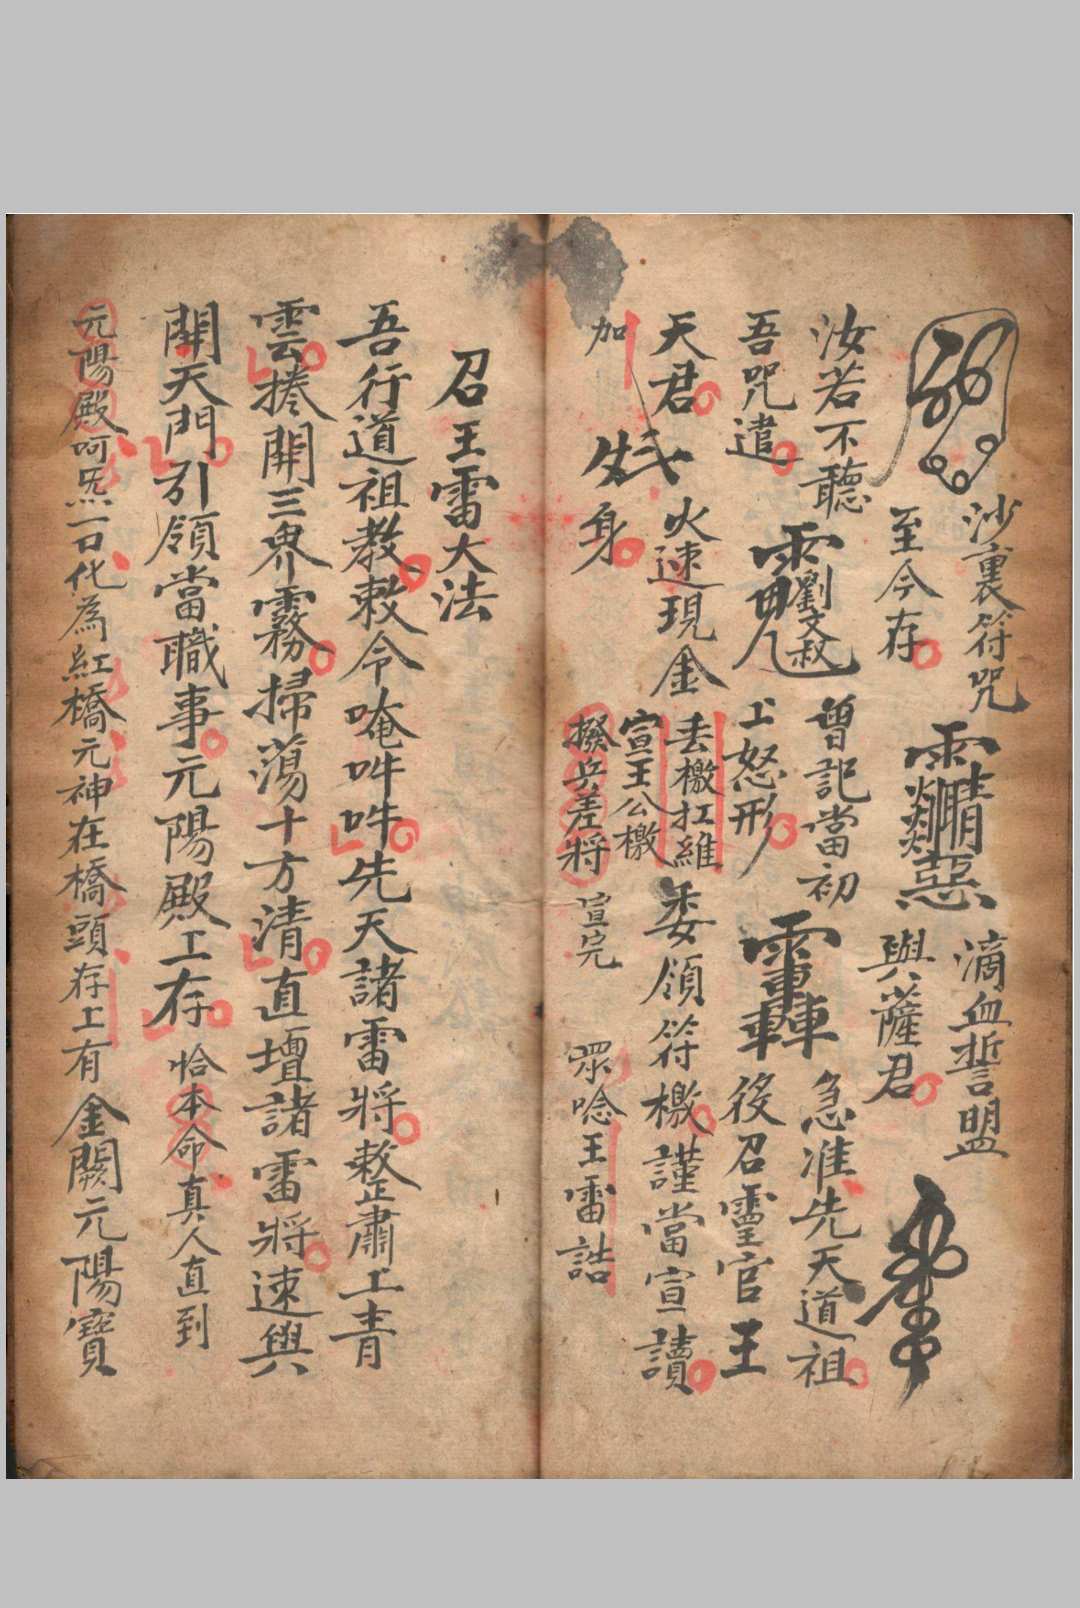 沙裏符咒 滴血誓盟
至今存 與薩君
汝若不聽 劉文叔 曾記當初 急准先天道祖
吾咒遣 上怒形 後召靈官王
天君 火速現金 去檄扛維 委領符檄謹當宣讀
宣王公檄
加 身 撥兵差將 宣完 眾唸王雷誥
召王雷大法
吾行道祖教敕令唵吽吽先天諸雷將整肅上青
雲捲開三界霧掃蕩十方清直壇諸雷將速與
開天門引領當職事元陽殿上存 恰本命真人直到
元陽殿呵炁一口化為紅橋元神在橋頭存上有金闕元陽寶